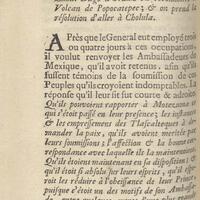 Volcan de Popocatepec; & on prend la
résolution d'aller à Cholula.
APrès que le General eut employé trois
ou quatre jours à ces occupations,
il voulut renvoyer les Ambassadeurs de
Mexique, qu'il avoit retenus, afin qu'ils
fussent témoins de la soumission de ces
Peuples qu'ils croyoient indomptables. La
réponse qu'il leur fit fut courte & adroite
Qu'ils pouvoient rapporter à Motezuma ce
qui s'étoit passé en leur presence; les instances
& les empressemens des Tlascalteques à de-
mander la paix, qu'ils avoient meritée par
leurs soumissions; l'affection & la bonne cor-
respondance avec laquelle ils la maintenoient:
Qu'ils étoient maintenant en sa disposition; &
qu'il étoit si absolu sur leurs esprits, qu'il espe-
roit les réduire à l'obeïssance de leur Prince
puisque c'étoit un des motifs de son Ambassa-